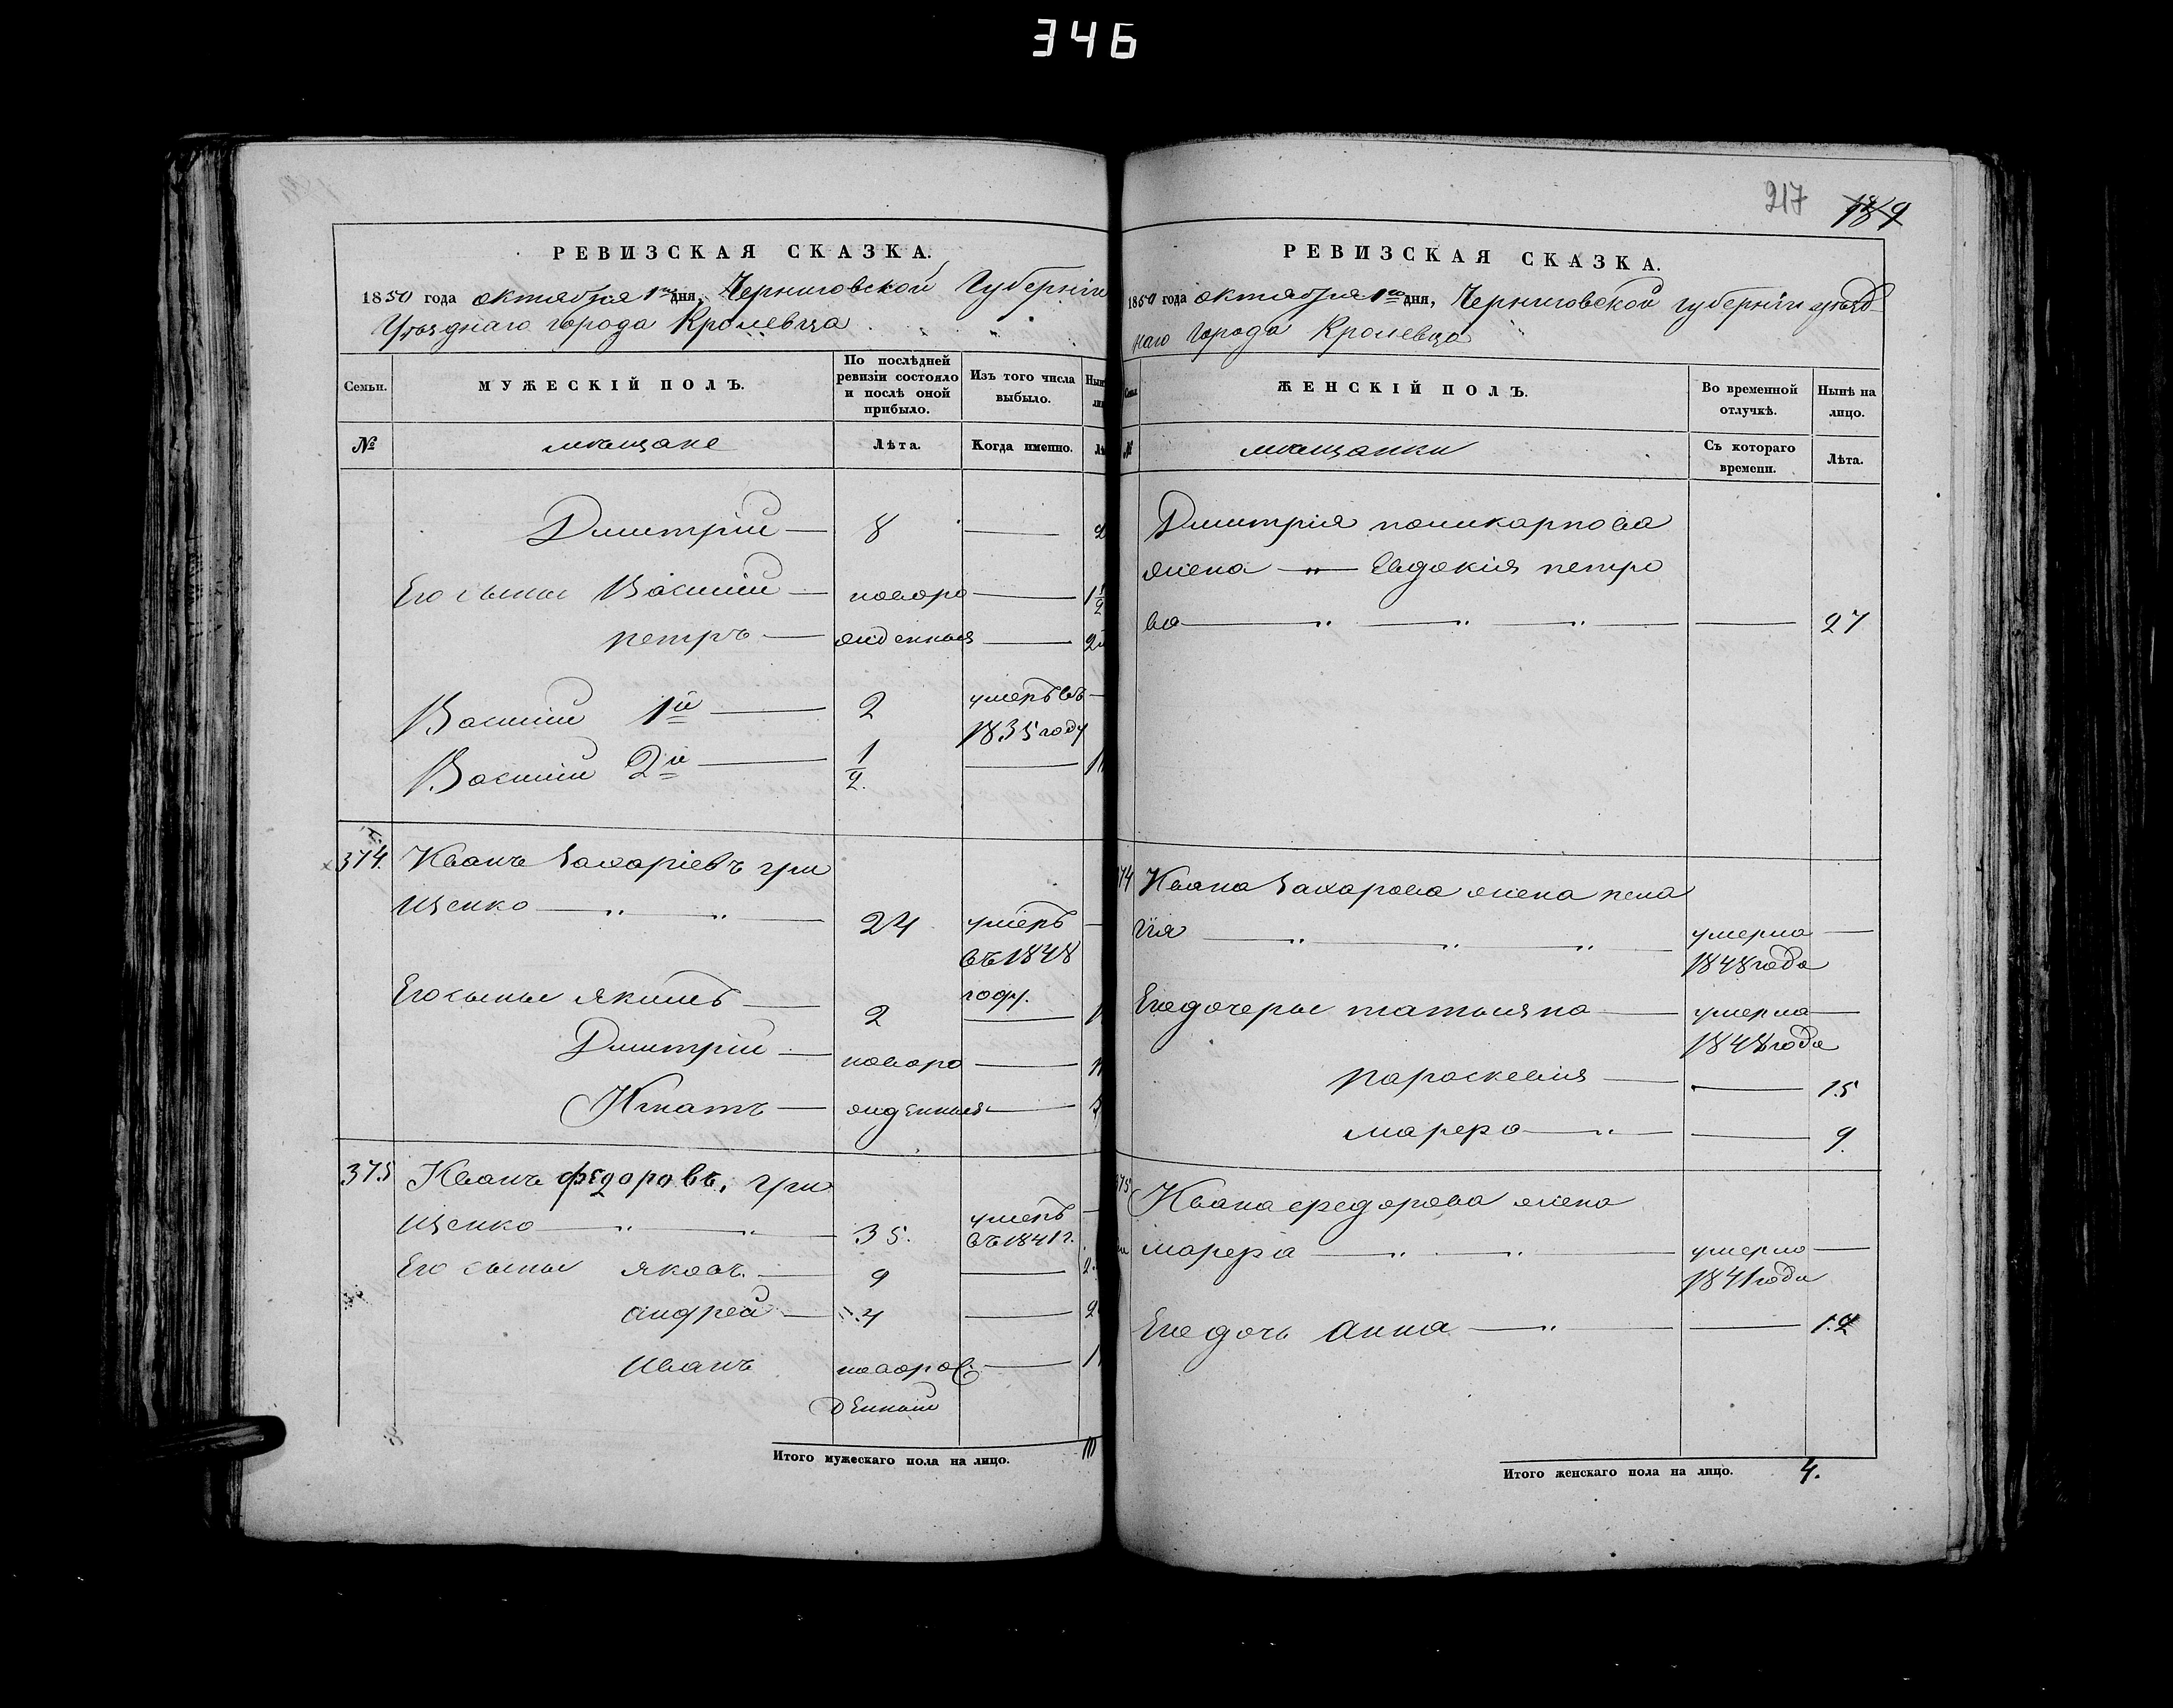 346
РЕВИЗСКАЯ СКАЗКА.
1850 года октября 1го дня, Черниговской Губерніи
Уѣзднаго города Кролевца
Семьи.
МУЖЕСКІЙ ПОЛЪ.
По послѣдней ревизіи состояло и послѣ оной прибыло.
Изъ того числа выбыло.
№
мѣщане
Лѣта.
Когда именно.
Дмитрій — 8 —
Его сыны Василій — новоро —
петръ — жденныя —
Василій 1й — 2 умеръ въ —
1835 году
Василій 2й — 1/2. —
374. Иванъ Захаріевъ гри
щенко — " — " — 24 умеръ —
въ 1848
году.
Его сыны якимъ — 2 —
Дмитрій — новоро —
Игнатъ — жденныя —
375 Иванъ федоровъ, гри
щенко — " — " — 35. умеръ —
въ 1841 г.
Его сыны яковъ. — 9 —
андрей — 4 —
иванъ новорож —
денный
Итого мужескаго пола на лицо.
217 189
РЕВИЗСКАЯ СКАЗКА.
1850 года октября 1го дня, Черниговской губерніи уѣзд-
наго города Кролевца
ЖЕНСКІЙ ПОЛЪ.
Во временной отлучкѣ.
Нынѣ на лицо.
№
мѣщанки
Съ котораго времени.
Лѣта.
Дмитрія поликарпова
жена — " — Евдокія петро
ва — " — " — " — — 27
Ивана Захарова жена пела
гія — " — " — " — умерла —
1848 года
Его дочеры татьяна — умерла —
1848 года
параскевія — — 15
марфа — " — — 9.
Ивана федорова жена
марфа — " — " — умерла —
1841 года
Его дочь анна — " — — 12
Итого женскаго пола на лицо. 4.